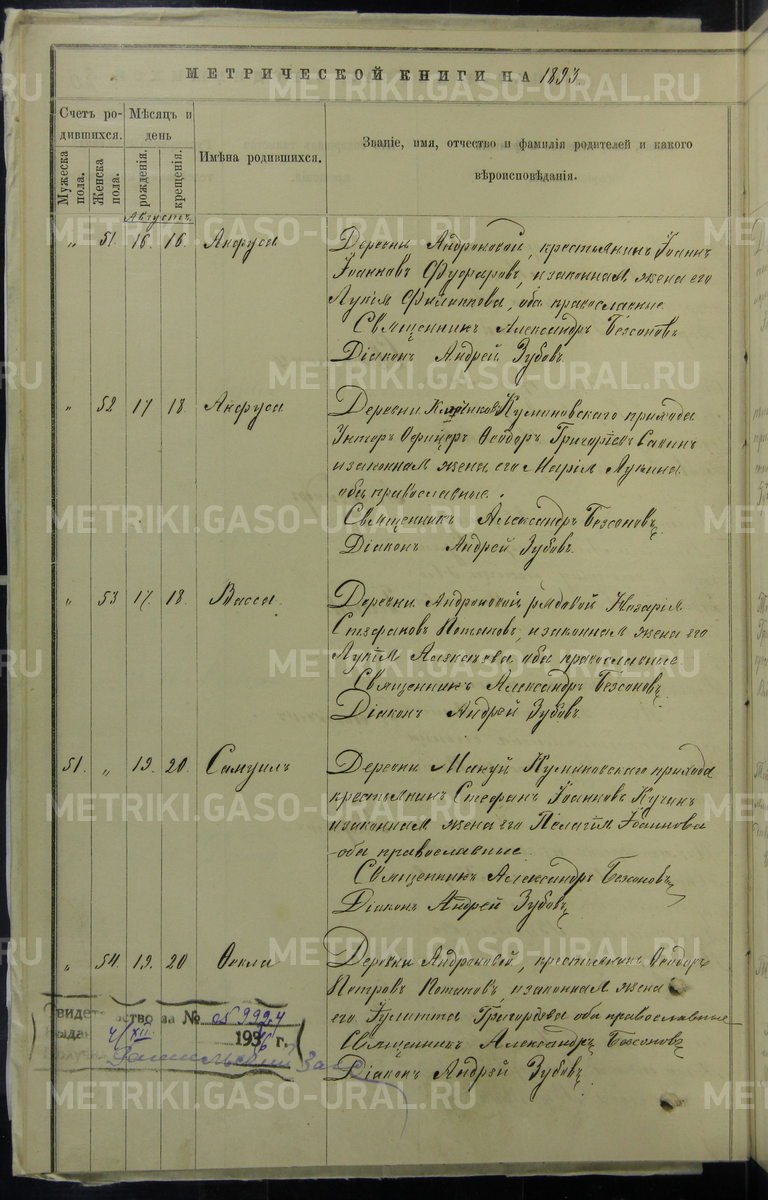 МЕТРИЧЕСКОЙ КНИГИ НА 1893.
Счетъ родившихся.
Мѣсяцъ и день
Имѣна родившихся.
Званіе, имя, отчество и фамилія родителей и какого вѣроисповѣданія.
Мужеска пола.
Женска пола.
рожденія.
крещенія.
Августъ
„ 51. 16. 16. Анфуса
Деревни Андроновой, крестьянинъ Іоаннъ
Іоанновъ Фуфаровъ, и законная жена его
Лукія Филиппова, оба православные
Священникъ Александръ Безсоновъ
Діаконъ Андрей Зубовъ
„ 52 17 18. Анфуса
Деревни Кумановскаго прихода
Унтеръ Офицеръ Ѳеодоръ Григоріевъ Савинъ
и законная жена его Марія Лукина
оба православные.
Священникъ Александръ Безсоновъ
Діаконъ Андрей Зубовъ.
„ 53 17. 18. Васса
Деревни Андроновой рядовой Назарій
Стефановъ Потаповъ, и законная жена его
Лукія оба православные
Священникъ Александръ Безсоновъ
Діаконъ Андрей Зубовъ.
51. „ 19. 20. Самуилъ
Деревни Макуй Кумановскаго прихода
крестьянинъ Стефанъ Іоанновъ Кучинъ
и законная жена его Пелагія Іоаннова
оба православные
Священникъ Александръ Безсоновъ
Діаконъ Андрей Зубовъ
„ 54. 19. 20 Ѳекла
Деревни Андроновой, крестьянинъ Ѳеодоръ
Петровъ Потаповъ и законная жена
его Іулитта Григорьева оба православные
Священникъ Александръ Безсоновъ
Діаконъ Андрей Зубовъ
за № 05 9924
4/XII 1936 г.
METRIKI.GASO-URAL.RU